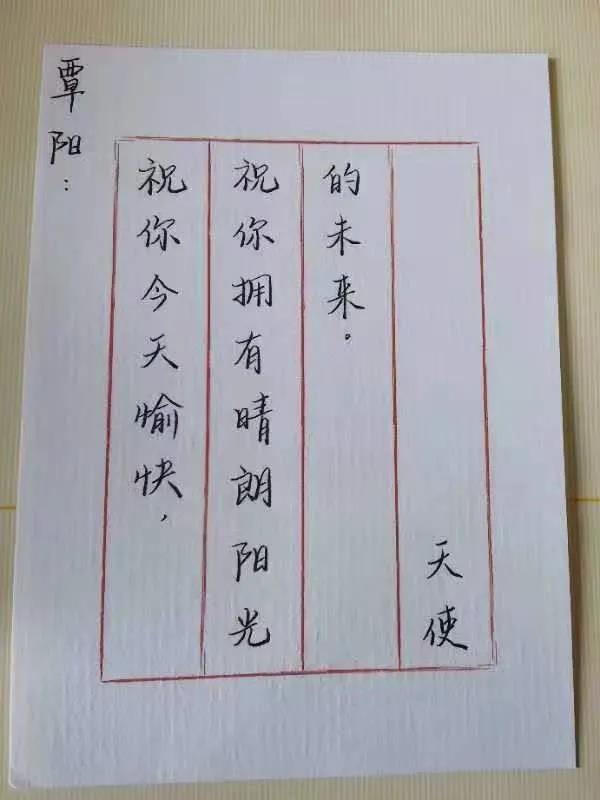 覃阳：
祝你今天愉快，
祝你拥有晴朗阳光
的未来。
天使